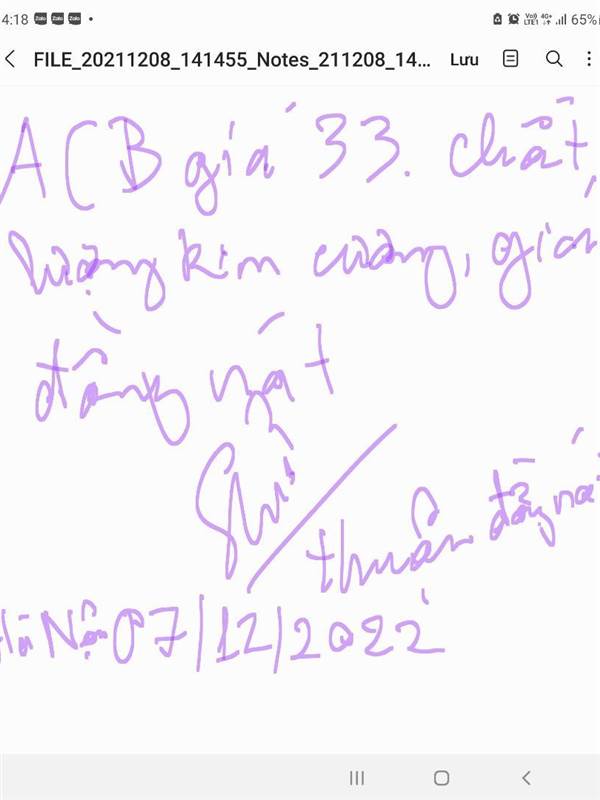 4:18 Zalo Zalo Zalo • Vo) LTE1 4G+ 65%
FILE_20211208_141455_Notes_211208_14... Lưu
ACB giá 33. chất,
lượng kim cương, giá
đồng nát
thuân đồng ná
Hà Nội 07/12/2022